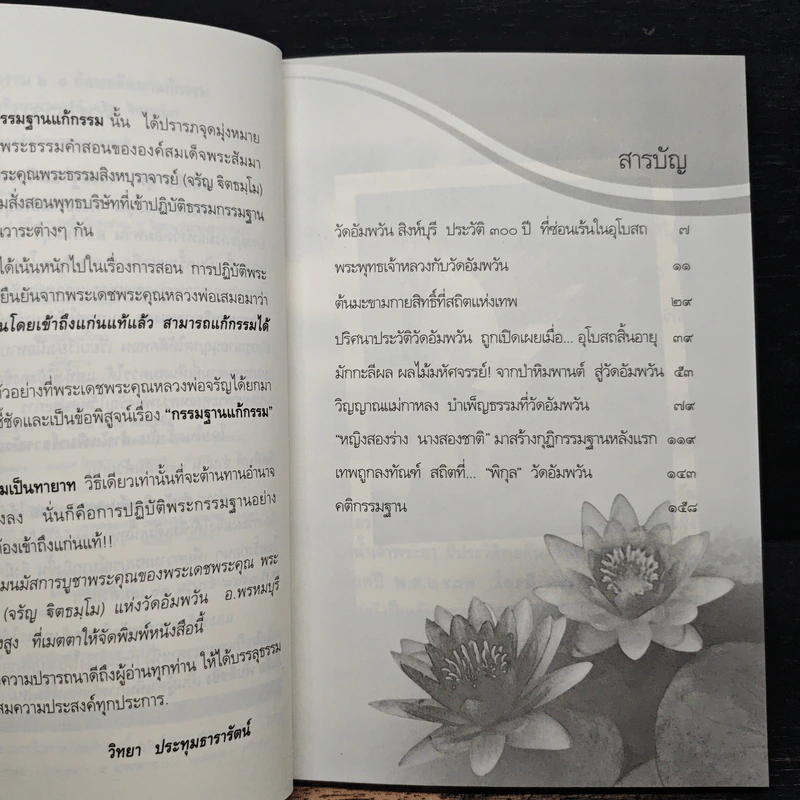 กรรมฐานแก้กรรม นั้น ได้ปรารภจุดมุ่งหมาย
พระธรรมคำสอนขององค์สมเด็จพระสัมมา
ระคุณพระธรรมสิงหบุราจารย์ (จรัญ ฐิตธมฺโม)
มสั่งสอนพุทธบริษัทที่เข้าปฏิบัติธรรมกรรมฐาน
นวาระต่างๆ กัน
ได้เน้นหนักไปในเรื่องการสอน การปฏิบัติพระ
ยืนยันจากพระเดชพระคุณหลวงพ่อเสมอมาว่า
นโดยเข้าถึงแก่นแท้แล้ว สามารถแก้กรรมได้
ตัวอย่างที่พระเดชพระคุณหลวงพ่อจรัญได้ยกมา
ชี้ชัดและเป็นข้อพิสูจน์เรื่อง "กรรมฐานแก้กรรม"
มเป็นทายาท วิธีเดียวเท่านั้นที่จะต้านทานอำนาจ
งลง นั่นก็คือการปฏิบัติพระกรรมฐานอย่าง
ต้องเข้าถึงแก่นแท้!!
มนมัสการบูชาพระคุณของพระเดชพระคุณ พระ
(จรัญ ฐิตธมฺโม) แห่งวัดอัมพวัน อ.พรหมบุรี
งสูง ที่เมตตาให้จัดพิมพ์หนังสือนี้
ความปรารถนาดีถึงผู้อ่านทุกท่าน ให้ได้บรรลุธรรม
สมความประสงค์ทุกประการ.
วิทยา ประทุมธารารัตน์
สารบัญ
วัดอัมพวัน สิงห์บุรี ประวัติ ๓๐๐ ปี ที่ซ่อนเร้นในอุโบสถ ๗
พระพุทธเจ้าหลวงกับวัดอัมพวัน ๑๑
ต้นมะขามกายสิทธิ์ที่สถิตแห่งเทพ ๒๙
ปริศนาประวัติวัดอัมพวัน ถูกเปิดเผยเมื่อ... อุโบสถสิ้นอายุ ๓๙
มักกะลีผล ผลไม้มหัศจรรย์! จากป่าหิมพานต์ สู่วัดอัมพวัน ๕๓
วิญญาณแม่กาหลง บำเพ็ญธรรมที่วัดอัมพวัน ๗๙
"หญิงสองร่าง นางสองชาติ" มาสร้างกุฏิกรรมฐานหลังแรก ๑๑๙
เทพถูกลงทัณฑ์ สถิตที่... "พิกุล" วัดอัมพวัน ๑๔๓
คติกรรมฐาน ๑๕๘